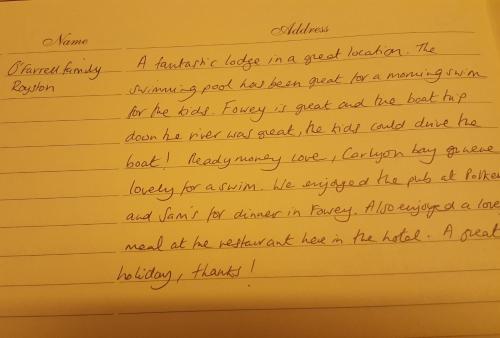 Name
Address
O'Farrell family
Royston
A fantastic lodge in a great location. The
swimming pool has been great for a morning swim
for the kids. Fowey is great and the boat trip
down the river was great, the kids could drive the
boat! Readymoney Cove, Carlyon bay
lovely for a swim. We enjoyed the pub at Polker
and Sam's for dinner in Fowey. Also enjoyed a love
meal at the restaurant here in the hotel. A great
holiday, thanks!